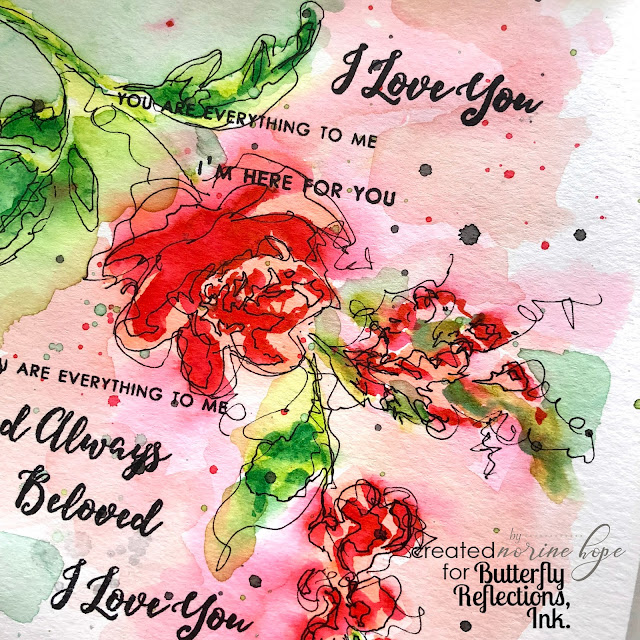 I Love You
YOU ARE EVERYTHING TO ME
I'M HERE FOR YOU
U ARE EVERYTHING TO ME
d Always
Beloved
I Love You
by
created norine hope
for Butterfly
Reflections,
Ink.